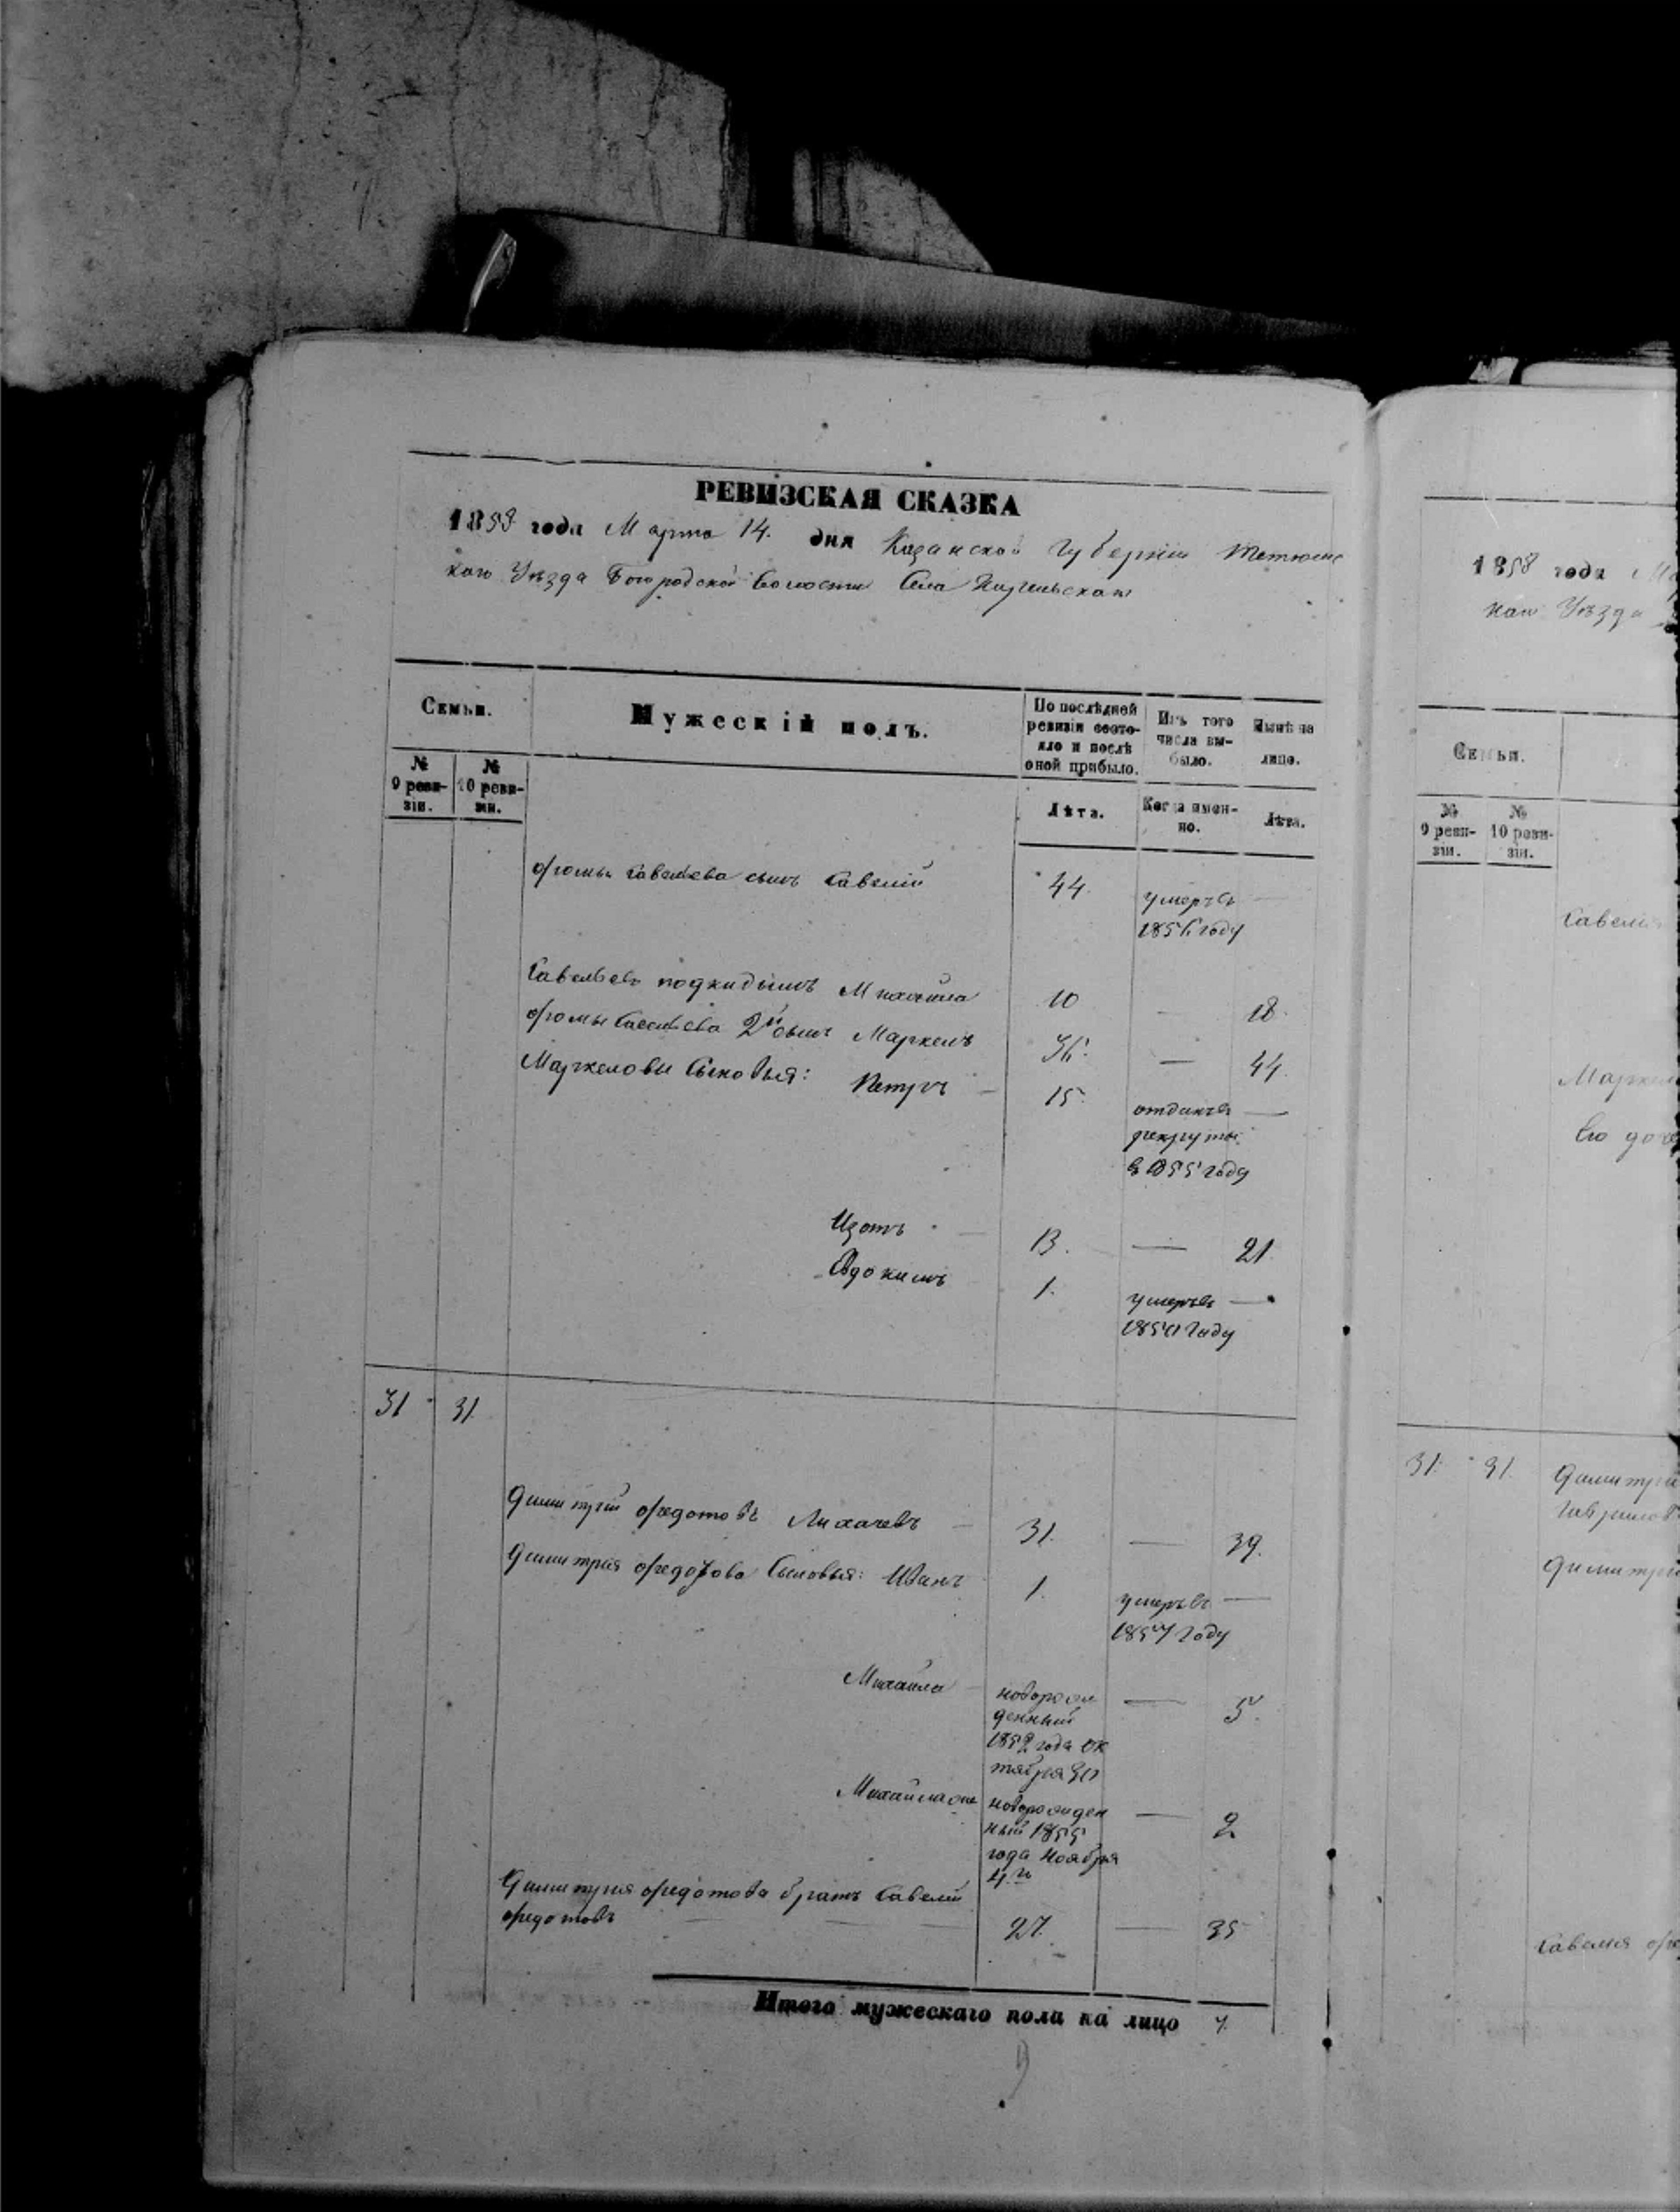 РЕВИЗСКАЯ СКАЗКА
1858 года Марта 14. дня Казанской Губерніи Тетюшс
каго Уѣзда Богородской Волости Села
Семьи.
Мужескій полъ.
По послѣдней ревизіи состояло и послѣ оной прибыло.
Изъ того числа выбыло.
Нынѣ на лицо.
№ 9 ревизіи.
№ 10 ревизіи.
Лѣта.
Когда именно.
Лѣта.
Ѳомы Савельева сынъ Савелій 44. умеръ въ —
185 году
Савельевъ подкидышъ Михайла 10 — 18.
Ѳомы Савельева 2й сынъ Маркелъ 36. — 44.
Маркеловы Сыновья: Петръ — 15. отданъ въ —
рекруты
въ 1855 году
Изотъ — 13. — 21.
Евдокимъ 1. умеръ въ —
1850 Году
31 31.
Димитрій Ѳедотовъ Лихачевъ — 31. — 39.
Димитрія Ѳедотова Сыновья: Иванъ 1. умеръ въ —
1857 Году
Михайла — новорож — 5.
денный
1852 года Ок
тября 30
Михайла же новорожден — 2
ный 1855
года Ноября
4.го
Димитрія Ѳедотова братъ Савелій
Ѳедотовъ — — — 27. — 35
Итого мужескаго пола на лицо 7.
1858 года Ма
каго Уѣзда
Семьи.
№ 9 ревизіи.
№ 10 ревизіи.
Савелі
Маркел
Его доче
31. 31. Димитрі
Гаврилов
Димитрі
Савелія Ѳе